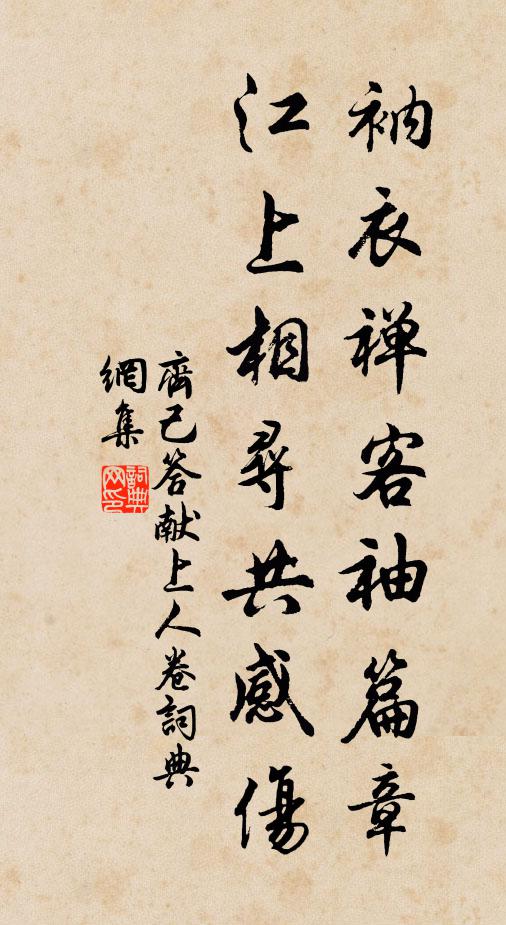 衲衣禅客袖篇章
江上相尋共感傷
齊己答献上人卷詞典
網集
詞典网印